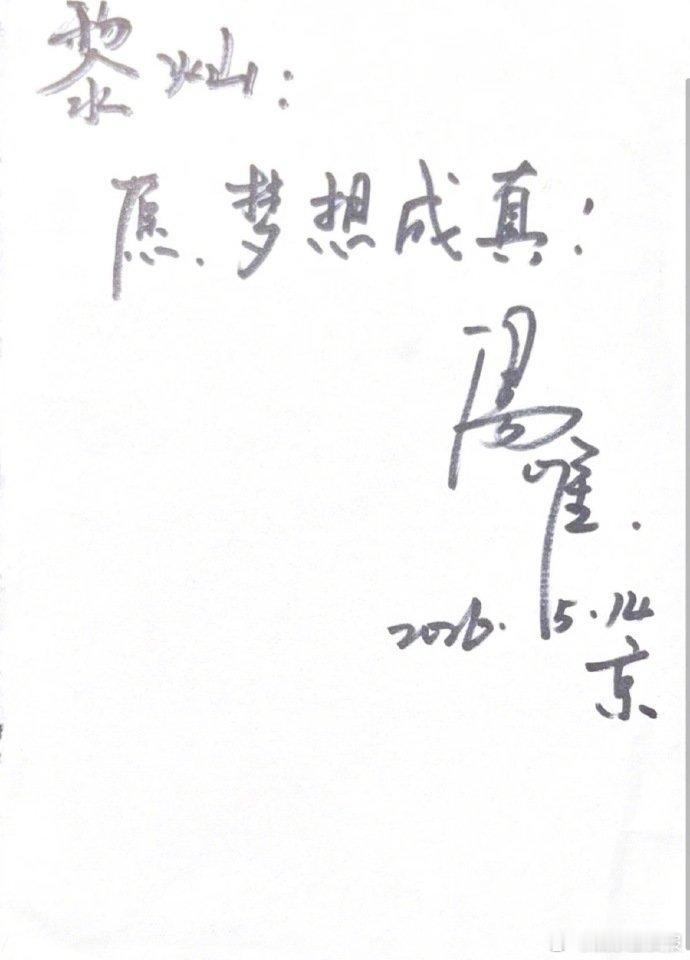 黎灿：
愿梦想成真！
2026.5.14
京